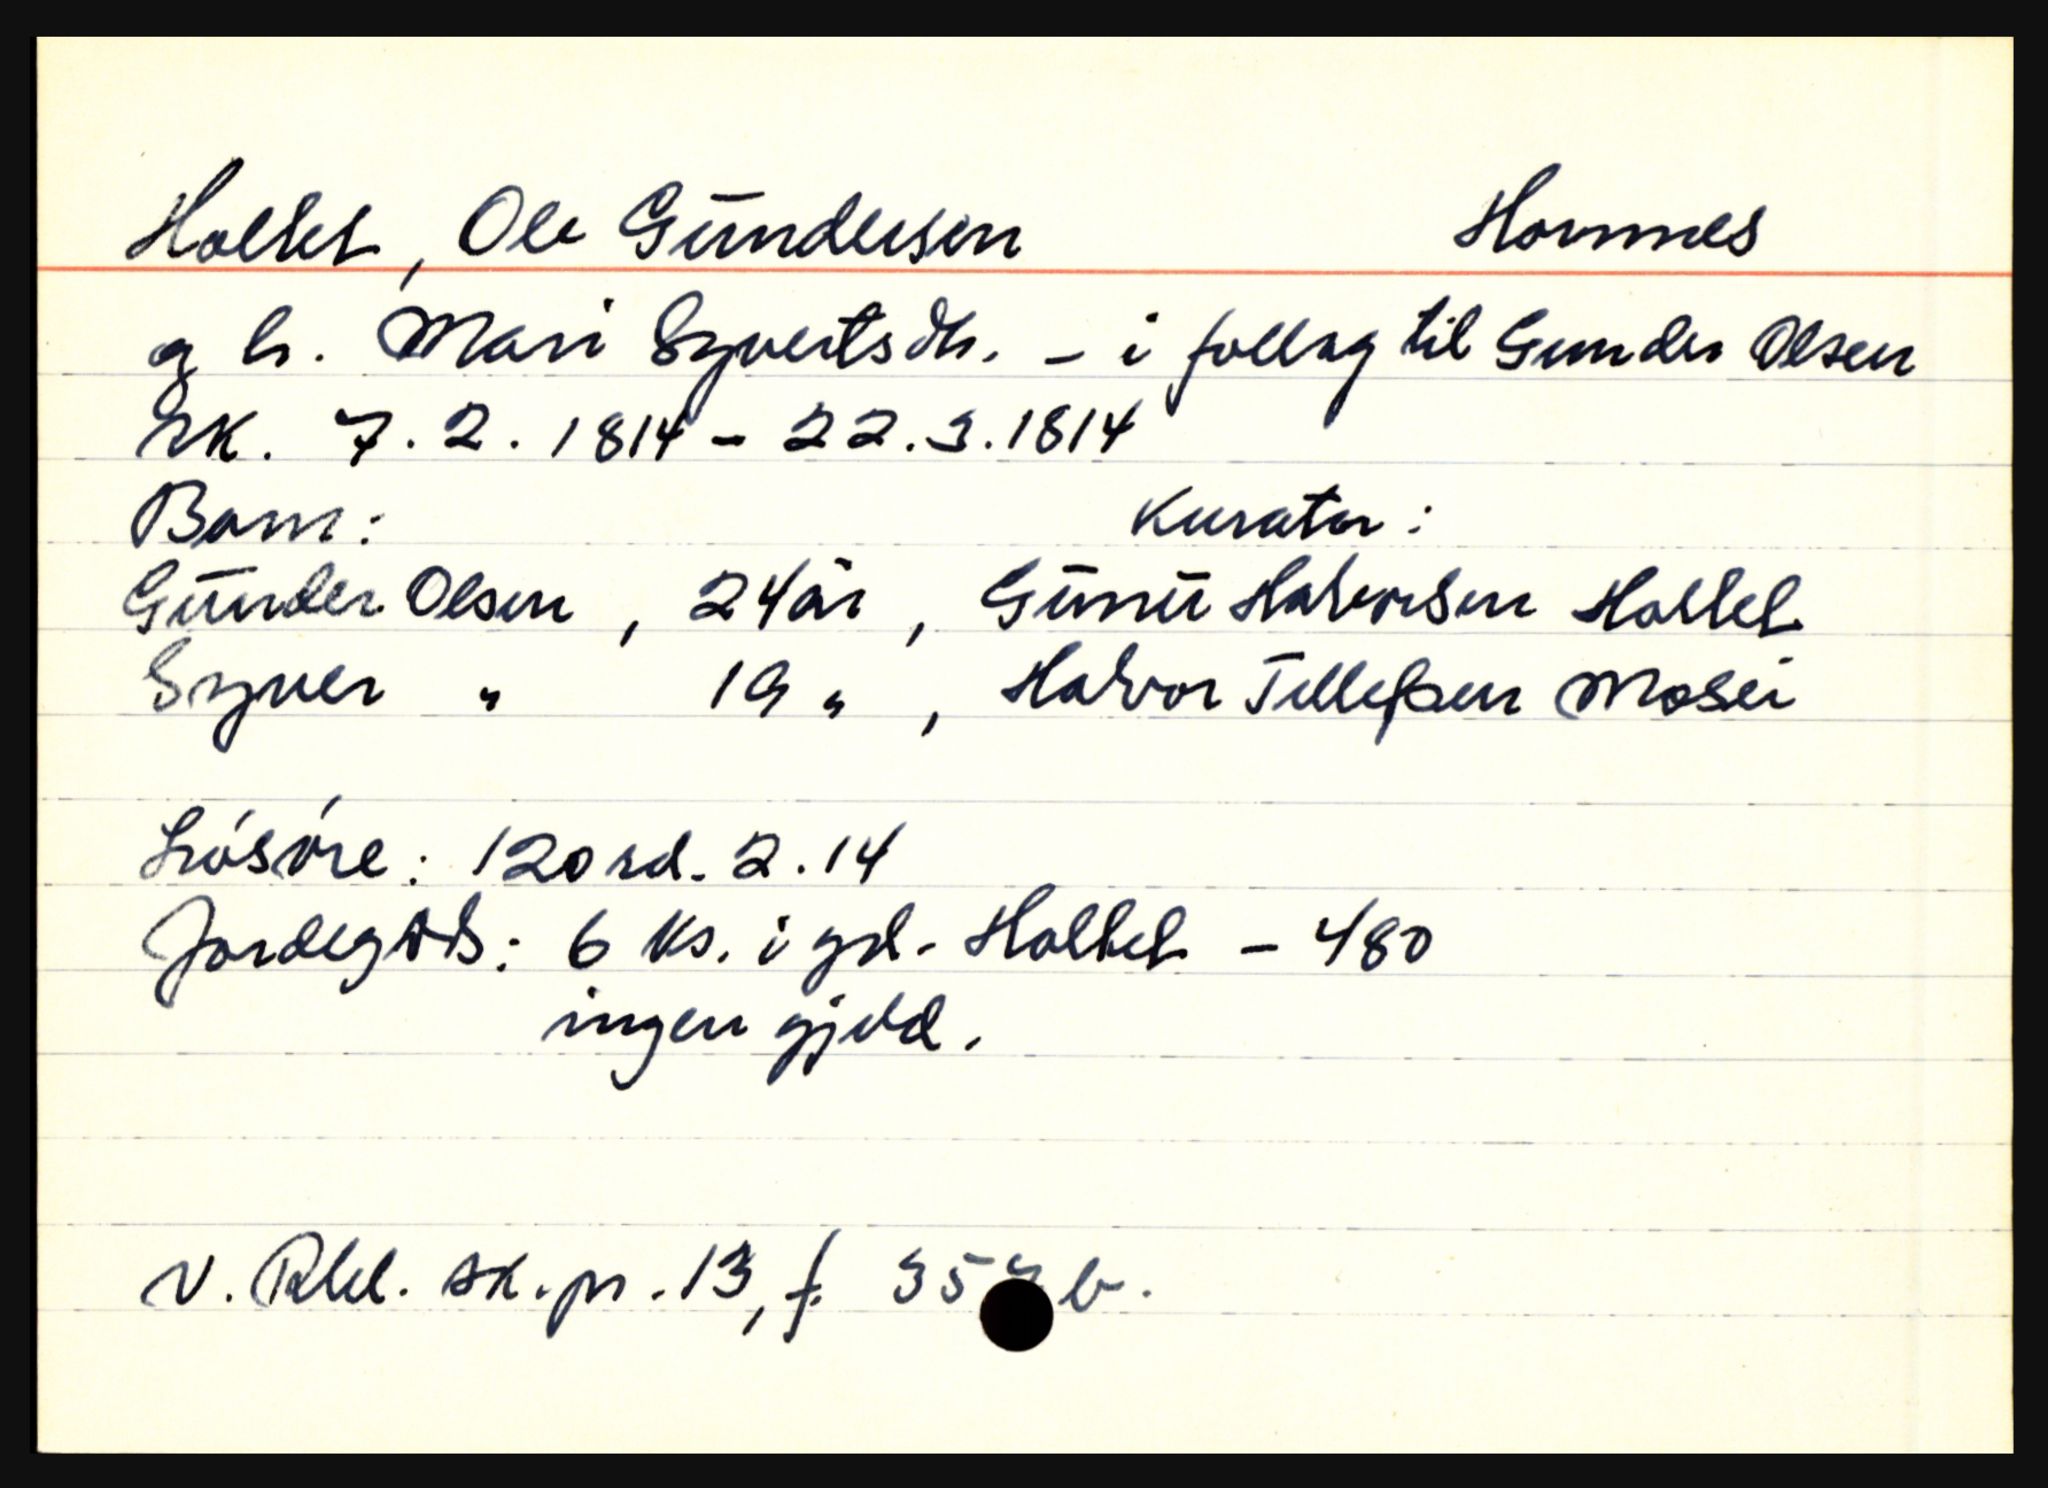 Holtet, Ole Gundersen Hornnes
g h. Mari Syvertsdtr. - i follag til Gunder Olsen
sk. 7.2.1814 - 22.3.1814
Barn: Kurator:
Gunder Olsen, 24 år, Gunu Halvorsen Holtet
Syver " 19 ", Halvor Tellefsen Mosei
Lösöre: 120 rd. 2.14
Jordegods: 6 ks. i grd. Holtet - 480
ingen gjeld.
V. Rbl. sk. pr. 13, f. 35 b.